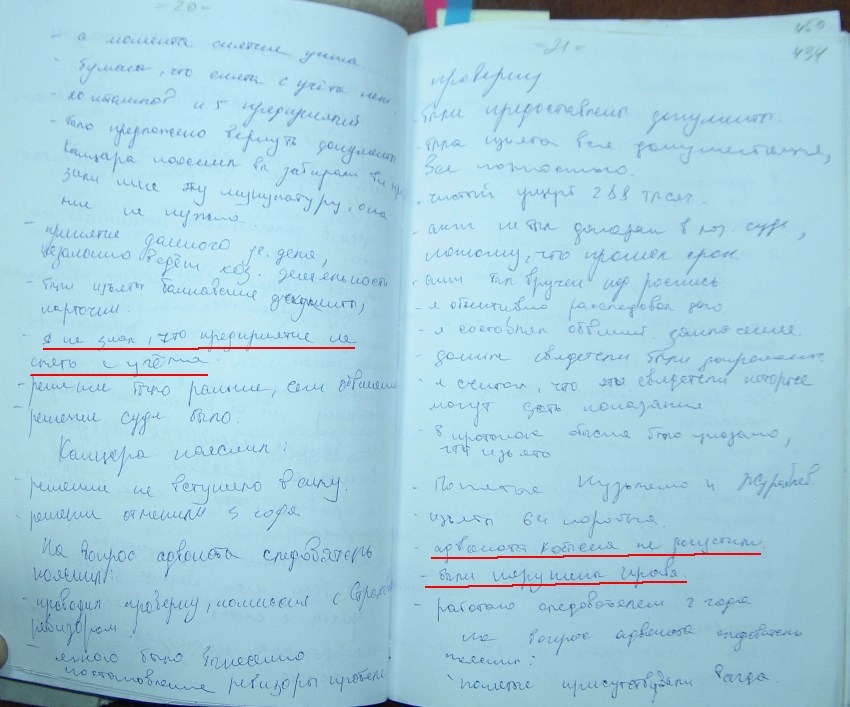 -20-
- с момента снятие учета
- бумага, что снята с учёта нет.
и 5 предприятий
- было предложено вернуть документы
Канцера пояснил вы забирали вы
мне эту макулатуру, она
мне не нужна.
- принятие данного уг. дела,
незаконно ведет хоз. деятельность
- были изъяты банковские документы,
карточки.
- я не знал, что предприятие не
снять с учёта.
- решение было раньше, чем обвинение
- решение суда было.
Канцера пояснил:
- решение не вступило в силу.
- решении отменили 3 года
На вопрос адвоката следователь
пояснил:
- проводил проверку, комиссия с
ревизором.
- мною было вынесено
постановление ревизоры провели
-21-
450
434
проверку
- были предоставлены документы.
- была изъята вся документация,
все полностью.
- чистый ущерб
- акт не был доказан в суде,
потому, что прошел срок
- акт был вручен под роспись
- я объективно расследовал дело
- я составлял обвинит. заключение
- данные свидетели были допрошены.
- я считал, что эти свидетели которые
могут дать показания
- в протоколе обыска было указано,
что изъято
- Понятые Кузьменко и Журавлев
- изъяты 64 коробки.
- адвоката не допустили
- были нарушены права.
- работаю следователем 2 года
На вопрос адвоката следователь
пояснил:
- понятые присутствовали всегда.